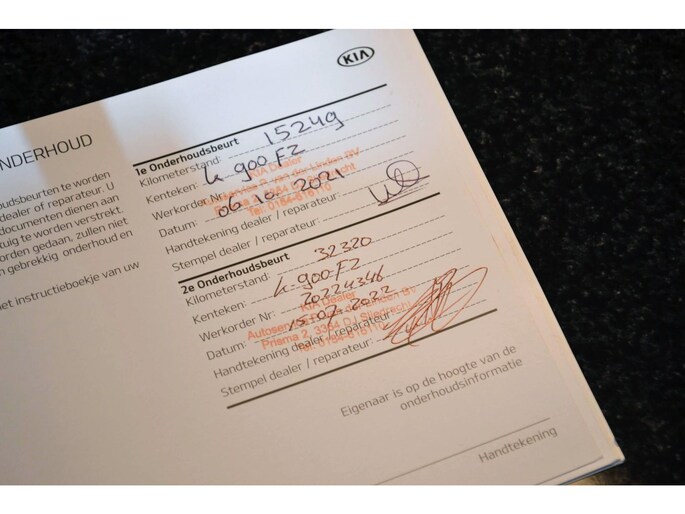 KIA
NDERHOUD
1e Onderhoudsbeurt
Kilometerstand: 15249
Kenteken: k 900 FZ
Werkorder Nr:
Datum: 06 10. 2021
Handtekening dealer / reparateur:
Stempel dealer / reparateur:
KIA Dealer
Tel. 0184-616110
2e Onderhoudsbeurt
Kilometerstand: 32320
Kenteken: k 900 FZ
Werkorder Nr: 20224346
Datum: 15-07-2022
Handtekening dealer / reparateur:
Stempel dealer / reparateur:
KIA Dealer
Prisma 2, 3364 DJ Sliedrecht
Tel. 0184-616110
oudsbeurten te worden
dealer of reparateur. U
documenten dienen aan
tuig te worden verstrekt.
orden gedaan, zullen niet
n gebrekkig onderhoud en
et instructieboekje van uw
Eigenaar is op de hoogte van de
onderhoudsinformatie
Handtekening